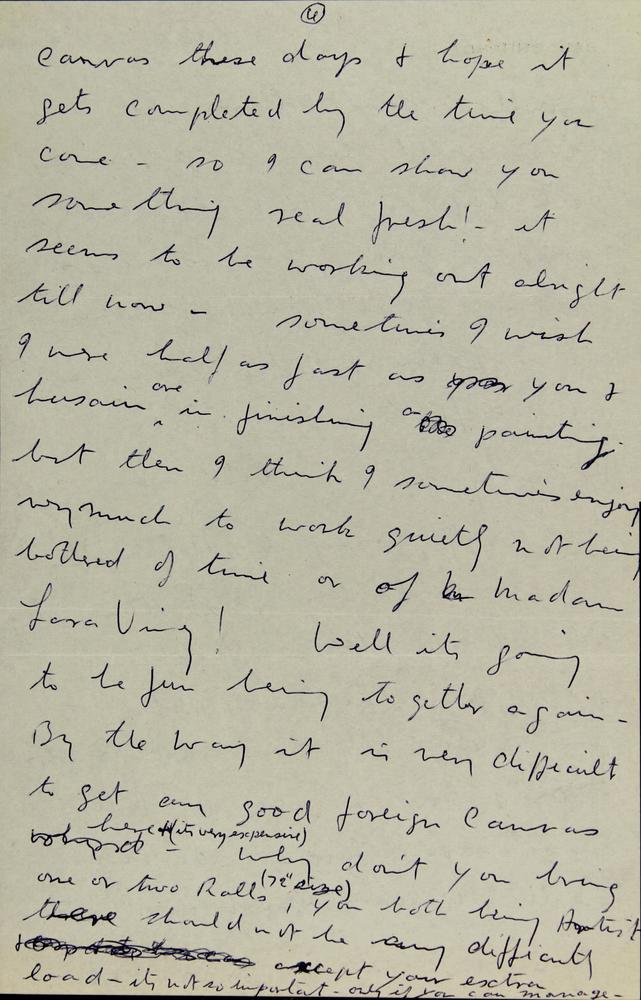 4
canvas these days & hope it
gets completed by the time you
come - so I can show you
something real fresh! - it
seems to be working out alright
till now - sometimes I wish
I were half as fast as you &
husain are in finishing a painting.
but then I think I sometimes enjoy
very much to work quietly not being
bothered of time or of Madam
Lara Ving!  Well its going
to be fun being together again -
By the way it is very difficult
to get any good foreign canvas
here (its very expensive) - Why don't you bring
one or two Rolls (72" size)! you both being Artist
there should not be any difficulty
except your extra
load - its not so important - only if you can manage -